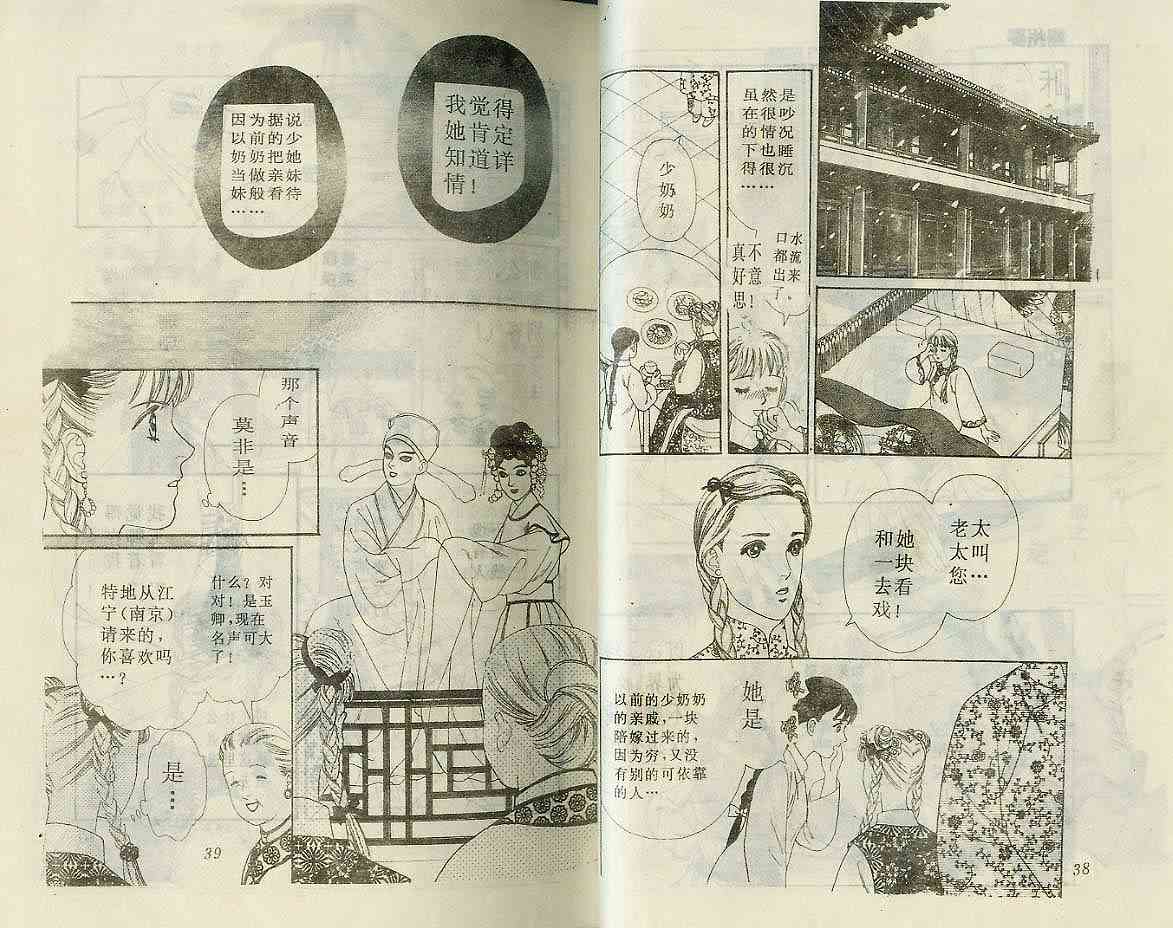 虽然是
在很吵
的情况
下也睡
得很沉
……
口水
都流
出来
了。
真不
好意
思！
少奶奶
老太
太叫
您…
和她
一块
去看
戏！
她是
以前的少奶奶
的亲戚，一块
陪嫁过来的，
因为穷，又没
有别的可依靠
的人…
38
我觉得
她肯定
知道详
情！
因为据说
以前的少
奶奶把她
当做亲妹
妹般看待
……
那个声音
莫非是…
什么？对
对！是玉
卿，现在
名声可大
了！
特地从江
宁（南京）
请来的，
你喜欢吗
…？
是……
39